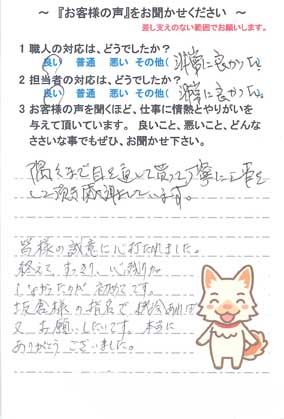 ～ 『お客様の声』をお聞かせください ～
差し支えのない範囲でお願いします。
1 職人の対応は、どうでしたか?
良い 普通 悪い その他( 非常に良かった。
2 担当者の対応は、どうでしたか?
良い 普通 悪い その他( 非常に良かった。
3 お客様の声を聞くほど、仕事に情熱とやりがいを
与えて頂いています。 良いこと、悪いこと、どんな
ささいな事でもぜひ、お聞かせ下さい。
隅々まで目を通して貰って丁寧に工事を
して頂き感謝しています。
皆様の誠意に心打たれました。
終えて、すっきり、心残りが
しなかったのが 初めてです。
坂倉様の指名で 機会あれば
又 お願いしたいです。本当に
ありがとう ございました。